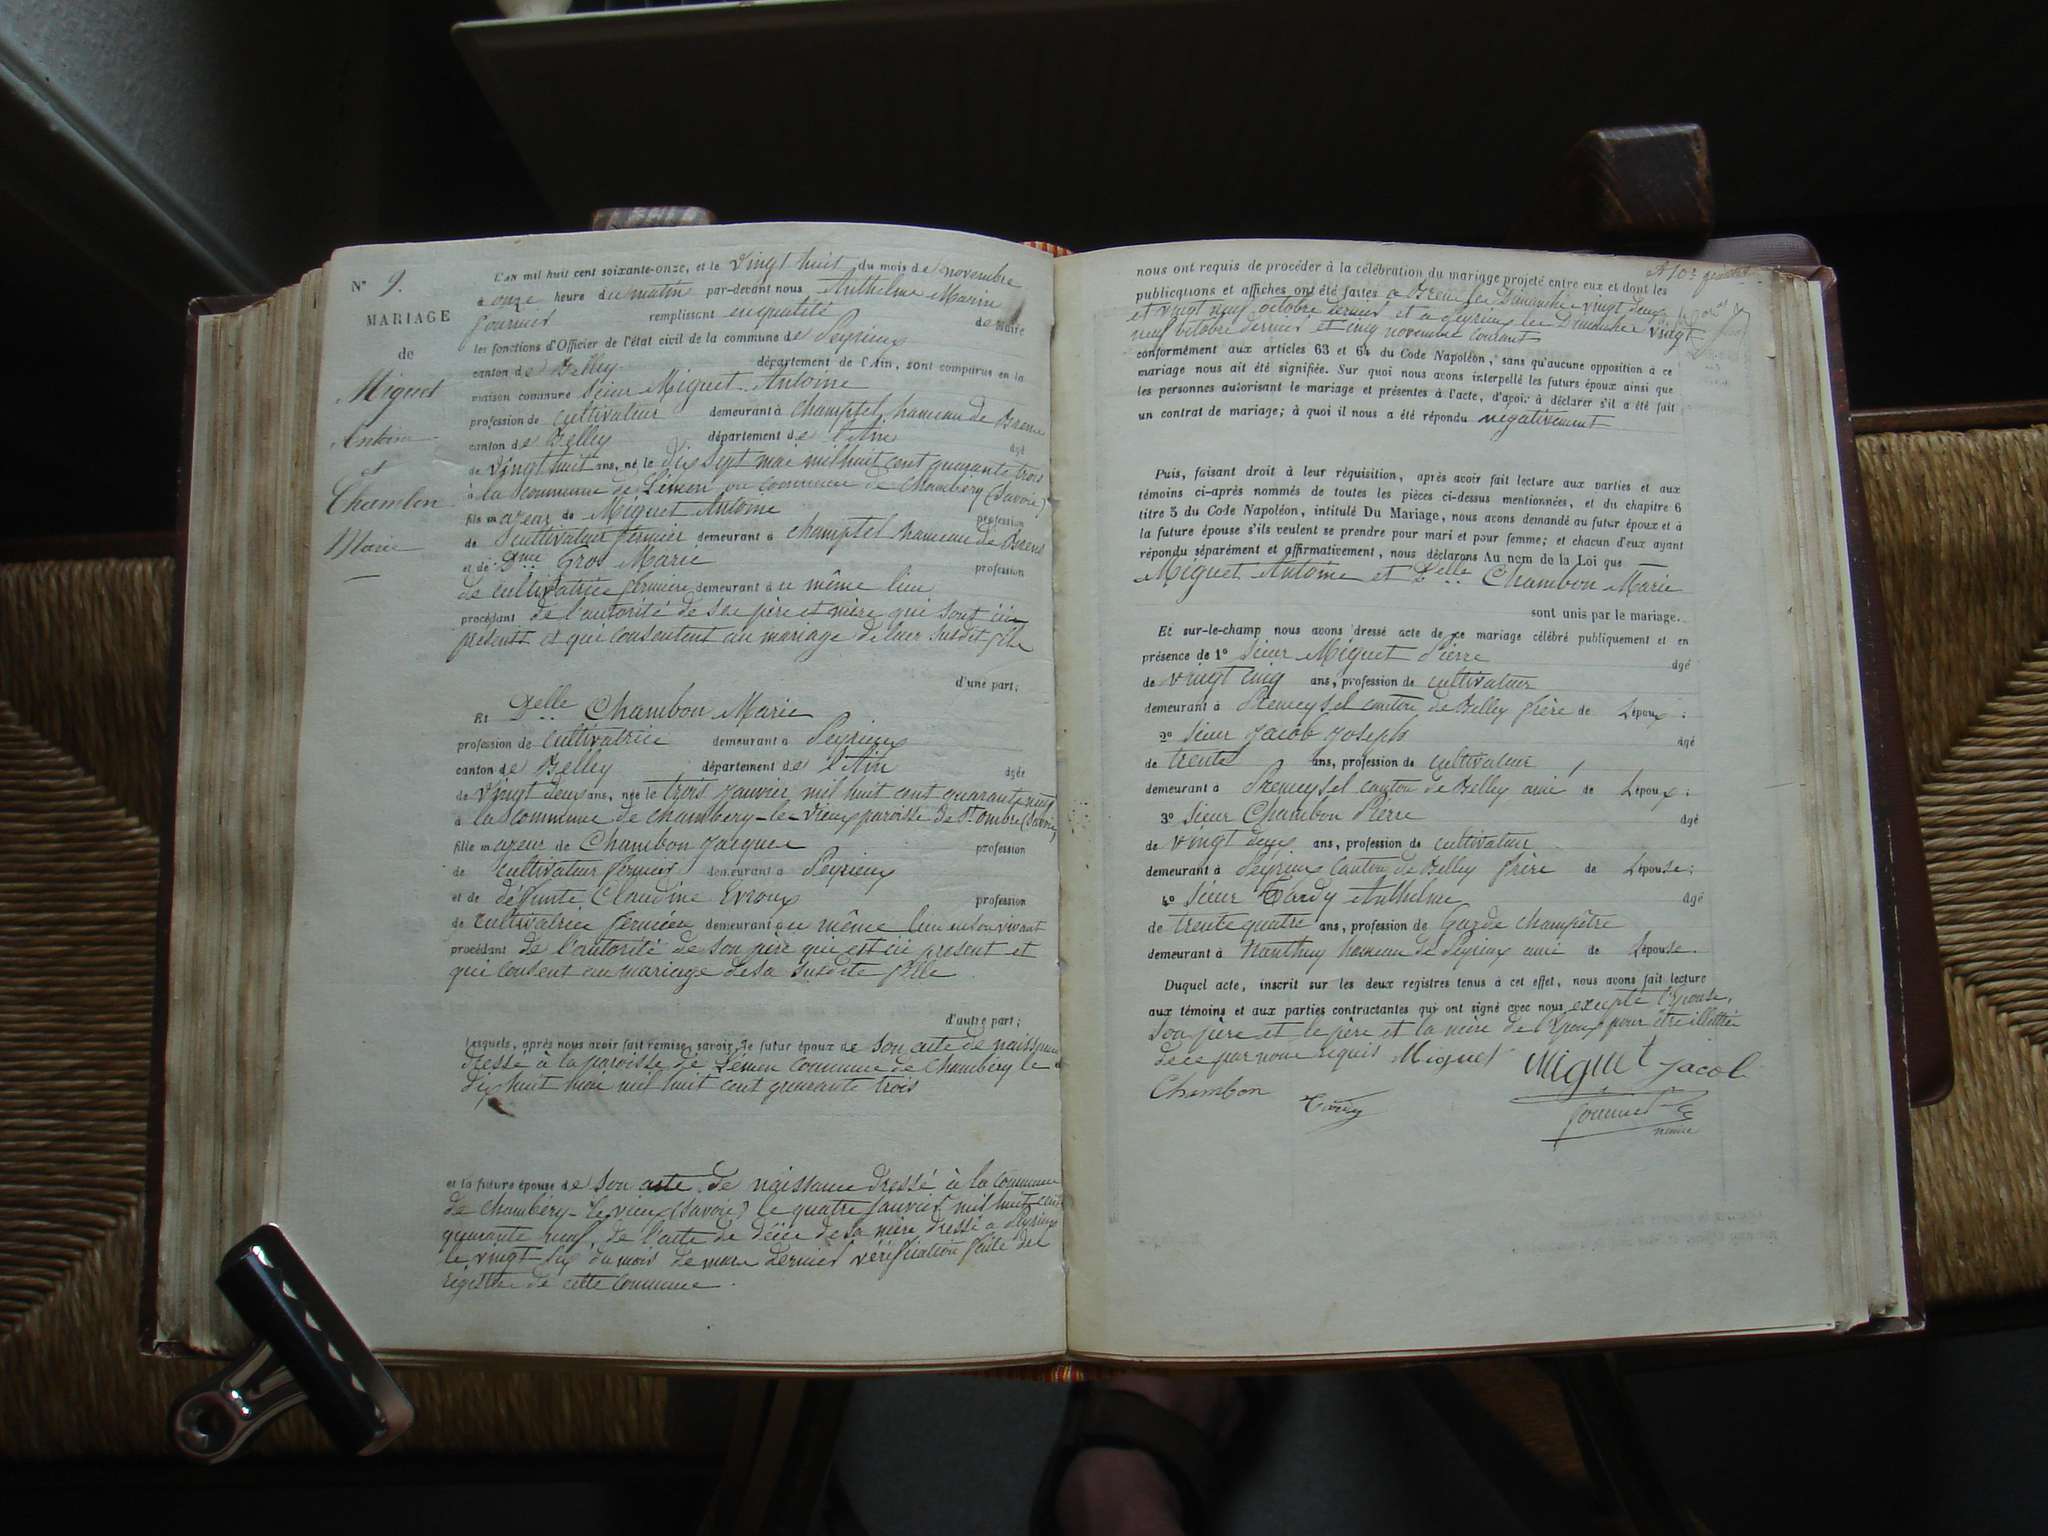 N° 9.
MARIAGE
de
Miguet
Antoine
et
Chambon
Marie
L'an mil huit cent soixante-onze, et le vingt huit du mois de novembre
à onze heure du matin par-devant nous Anthelme Marin
Fournier remplissant en qualité de Maire
les fonctions d'Officier de l'état civil de la commune de Peyrieux
canton de Belley département de l'Ain, sont comparus en la
maison commune Sieur Miguet Antoine
profession de cultivateur demeurant à champtel hameau de Brens
canton de Belley département de l'Ain âgé
de vingt huit ans, né le dix sept mai mil huit cent quarante trois
à la commune de Lémen ou commune de Chambéry (Savoie)
fils majeur de Miguet Antoine profession
de cultivateur fermier demeurant à champtel hameau de Brens
et de Dme Gros Marie profession
de cultivatrice fermière demeurant à ce même lieu
procédant de l'autorité de ses père et mère qui sont ici
présents et qui consentent au mariage de leur susdit fils
d'une part;
Et Delle Chambon Marie
profession de cultivatrice demeurant à Peyrieux
canton de Belley département de l'Ain âgée
de vingt deux ans, née le trois janvier mil huit cent quarante neuf
à la commune de chambéry-le-Vieux paroisse de St ombre (Savoie)
fille majeur de Chambon Jacques profession
de cultivateur fermier demeurant à Peyrieux
et de défunte Claudine Evroux profession
de cultivatrice fermière demeurant à ce même lieu en son vivant
procédant de l'autorité de son père qui est ici present et
qui consent au mariage de sa susdite fille
d'autre part;
Lesquels, après nous avoir fait remise, savoir, le futur époux de son acte de naissance
dressé à la paroisse de Lémen commune de Chambéry le
dix huit mai mil huit cent quarante trois
et la future épouse de son acte de naissance dressé à la commune
de Chambéry-le vieux (Savoie) le quatre janvier mil huit cent
quarante neuf, de l'acte de décès de sa mère dressé à Peyrieux
le vingt six du mois de mars dernier vérification faite du
registre de cette commune.
nous ont requis de procéder à la célébration du mariage projeté entre eux et dont les
publications et affiches ont été faites à Brens les Dimanche vingt deux
et vingt neuf octobre dernier et à Peyrieux les Dimanche vingt
neuf octobre dernier et cinq novembre courant
conformément aux articles 63 et 64 du Code Napoléon, sans qu'aucune opposition à ce
mariage nous ait été signifiée. Sur quoi nous avons interpellé les futurs époux ainsi que
les personnes autorisant le mariage et présentes à l'acte, d'avoir à déclarer s'il a été fait
un contrat de mariage; à quoi il nous a été répondu négativement
Puis, faisant droit à leur réquisition, après avoir fait lecture aux parties et aux
témoins ci-après nommés de toutes les pièces ci-dessus mentionnées, et du chapitre 6
titre 5 du Code Napoléon, intitulé Du Mariage, nous avons demandé au futur époux et à
la future épouse s'ils veulent se prendre pour mari et pour femme; et chacun d'eux ayant
répondu séparément et affirmativement, nous déclarons Au nom de la Loi que
Miguet Antoine et Delle Chambon Marie
sont unis par le mariage.
Et sur-le-champ nous avons dressé acte de ce mariage célébré publiquement et en
présence de 1° Sieur Miguet Pierre âgé
de vingt cinq ans, profession de cultivateur
demeurant à Premeyzel canton de Belley frère de L'époux;
2° Sieur Jacob Joseph âgé
de trente ans, profession de cultivateur
demeurant à Premeyzel canton de Belley ami de L'époux;
3° Sieur Chambon Pierre âgé
de vingt deux ans, profession de cultivateur
demeurant à Peyrieux canton de Belley frère de L'épouse;
4° Sieur Tardy Anthelme âgé
de trente quatre ans, profession de Garde champêtre
demeurant à Nanthuy hameau de Peyrieux ami de L'épouse.
Duquel acte, inscrit sur les deux registres tenus à cet effet, nous avons fait lecture
aux témoins et aux parties contractantes qui ont signé avec nous excepté l'Epouse,
son père et le père et la mère de l'Epoux pour être illettrés
de ce par nous requis Miguet Miguet Jacob
Chambon Tardy Fournier
maire